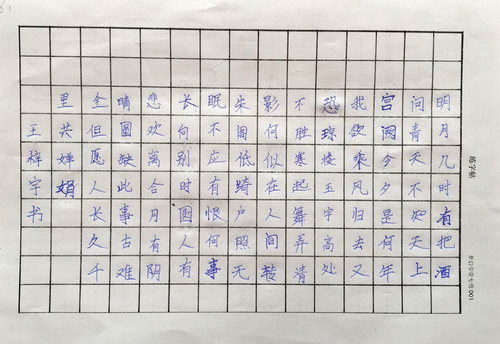 明月几时有把酒
问青天不知天上
宫阙今夕是何年
我欲乘风归去又
恐琼楼玉宇高处
不胜寒起舞弄清
影何似在人间装
朱阁低绮户照无
眠不应有恨何事
长向别时圆人有
悲欢离合月有阴
晴圆缺此事古难
全但愿人长久千
里共婵娟
王梓宇书
练字帖
001